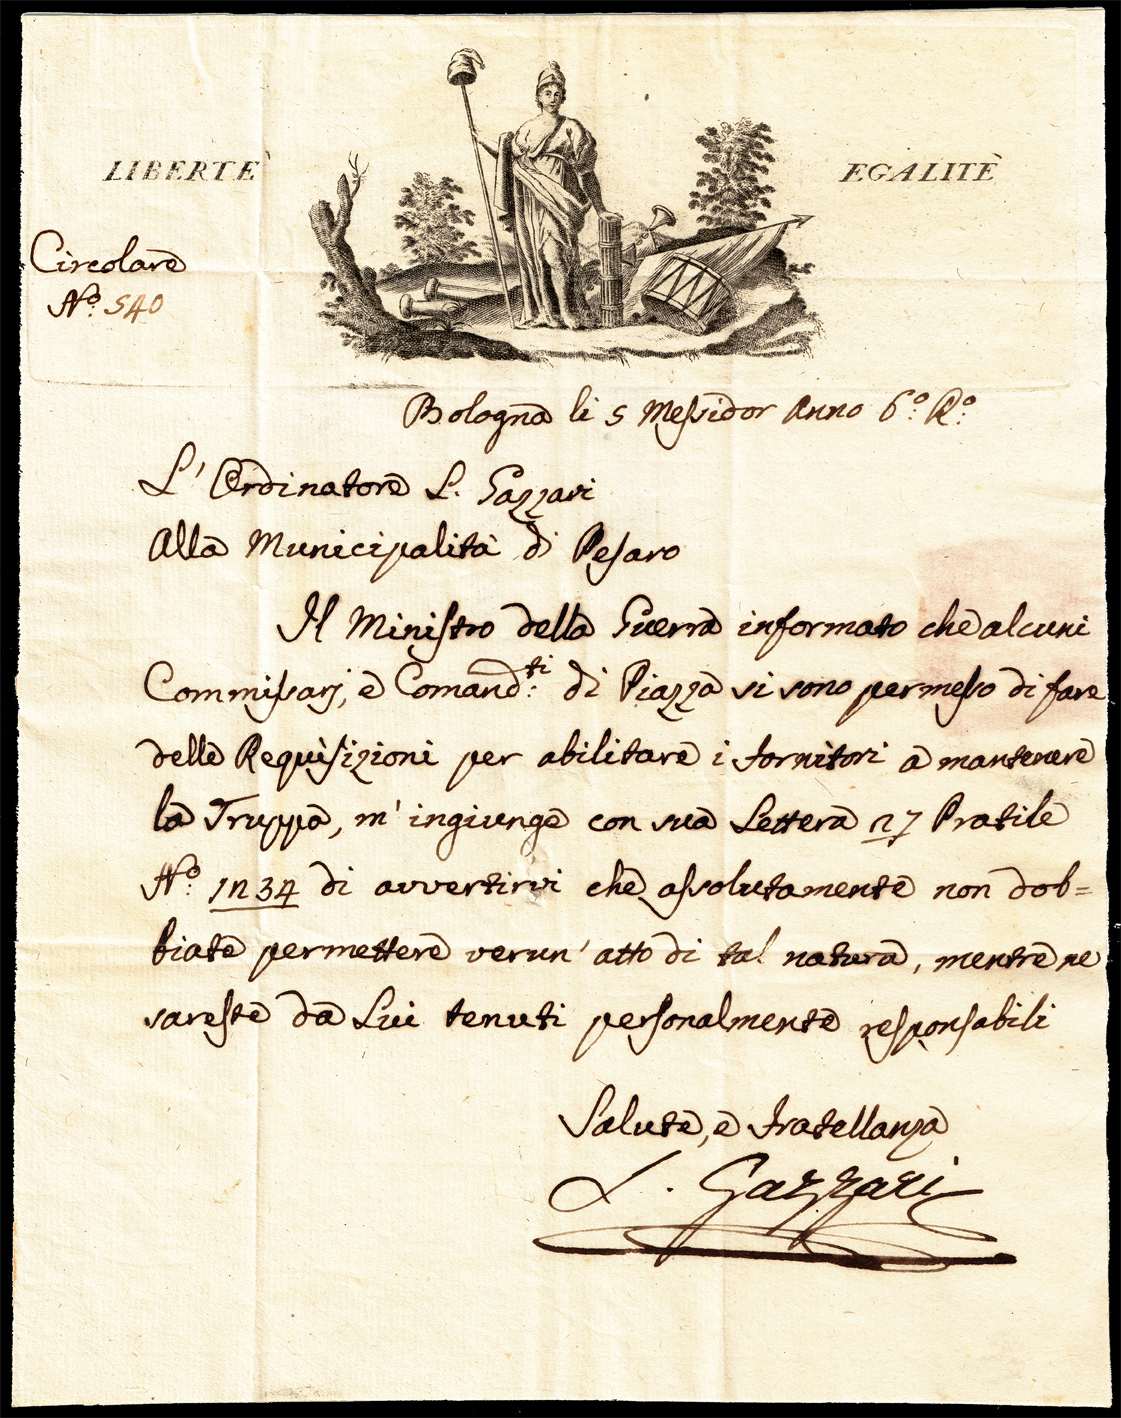 LIBERTÈ
EGALITÈ
Circolare
N.º 540
Bologna li 5 Messidor Anno 6.º R.º
L' Ordinatore L. Gazzari
Alla Municipalità di Pesaro
Il Ministro della Guerra informato che alcuni
Commissarj, e Comand.ti di Piazza si sono permesso di fare
delle Requisizioni per abilitare i fornitori a mantenere
la Truppa, m' ingiunge con sua Lettera 27 Pratile
N.º 1234 di avvertirvi che assolutamente non dob=
biate permettere verun' atto di tal natura, mentre ne
sareste da Lui tenuti personalmente responsabili
Salute, e fratellanza
L. Gazzari